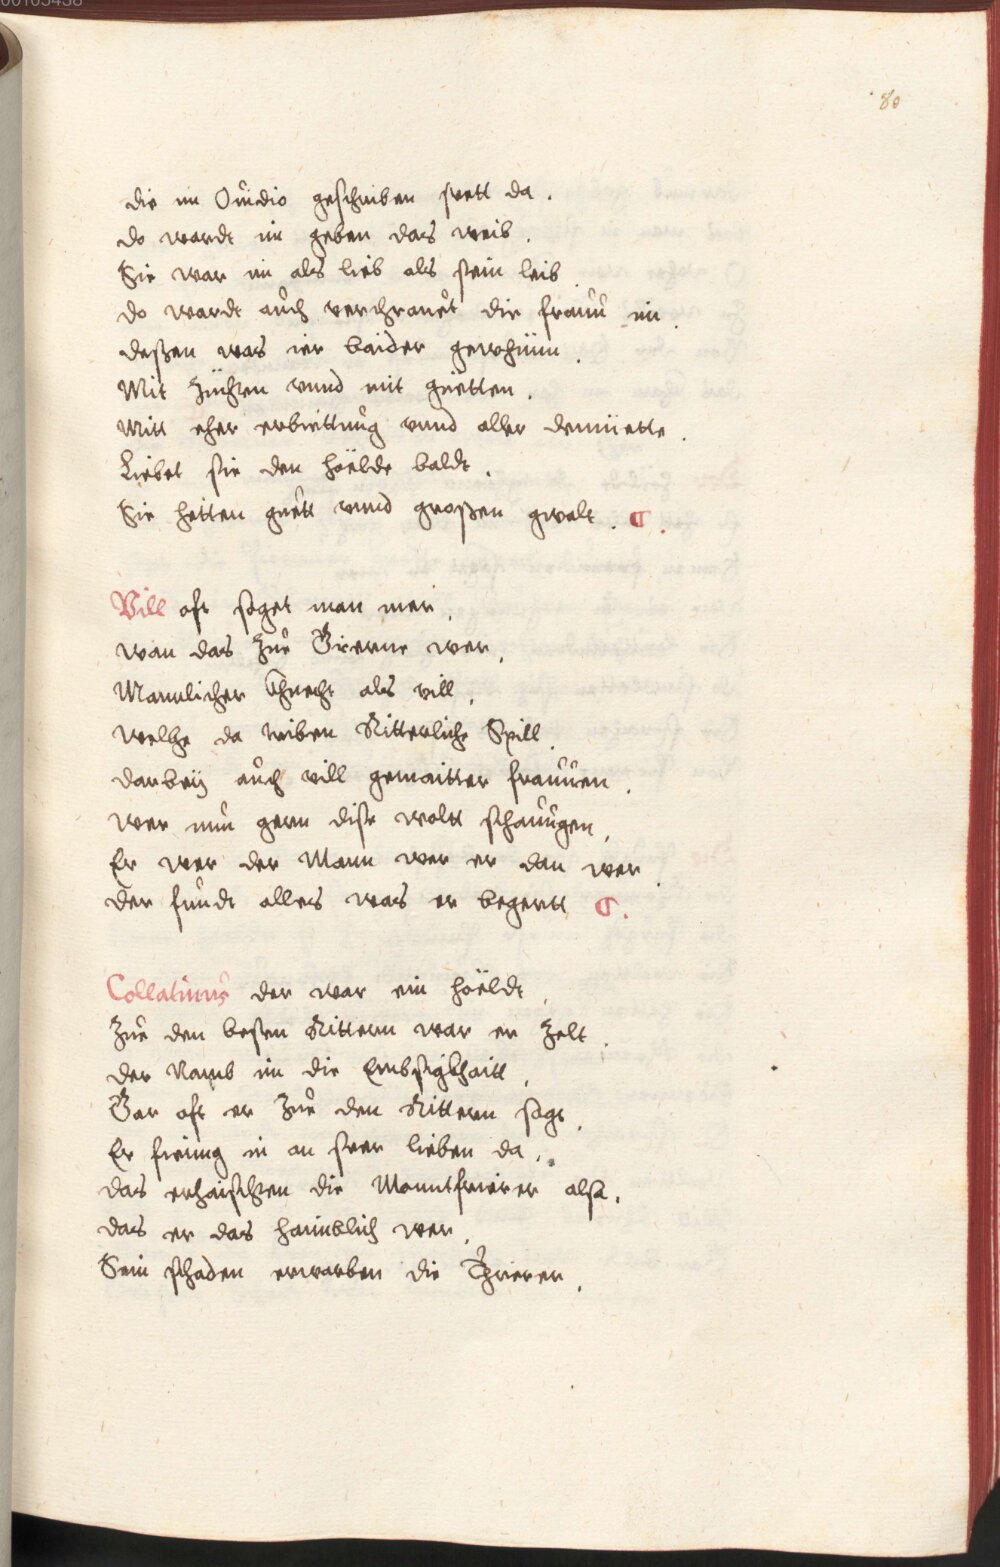 00105438
80
die im Ouidio geschriben stett da.
do wardt im geben das weib.
Sie war im als lieb als sein leib
do wardt auch verthrauet die frauu im.
dessen was ier baider gewhinn.
Mit züchten vnnd mit güetten.
Mitt eher erbiettung vnnd aller demüette.
Liebet sie den höeldt baldt.
Sie hetten guett vnnd grossen gwalt. C.
Vill oft saget man mer,
wan das zue Trierne wer,
Manlicher Khnecht als vill,
welche da triben Ritterliche Spill,
darbeÿ auch vill gemaitter frauuen.
wer nun gern dise woltt schauugen,
Er wer der Mann wer er dan wer.
der fundt alles was er begertt C.
Collatinus der war ein höeldt,
Zue den besten Rittern war er Zelt.
der Namb im die Embsigkhaitt,
Gar oft er Zue den Rittern sagt,
Er fieing in an seer lieben da.
das erhaischten die Manntfrierer also.
das er das haimblich wer,
Sein schaden erwarben die Thrierer.